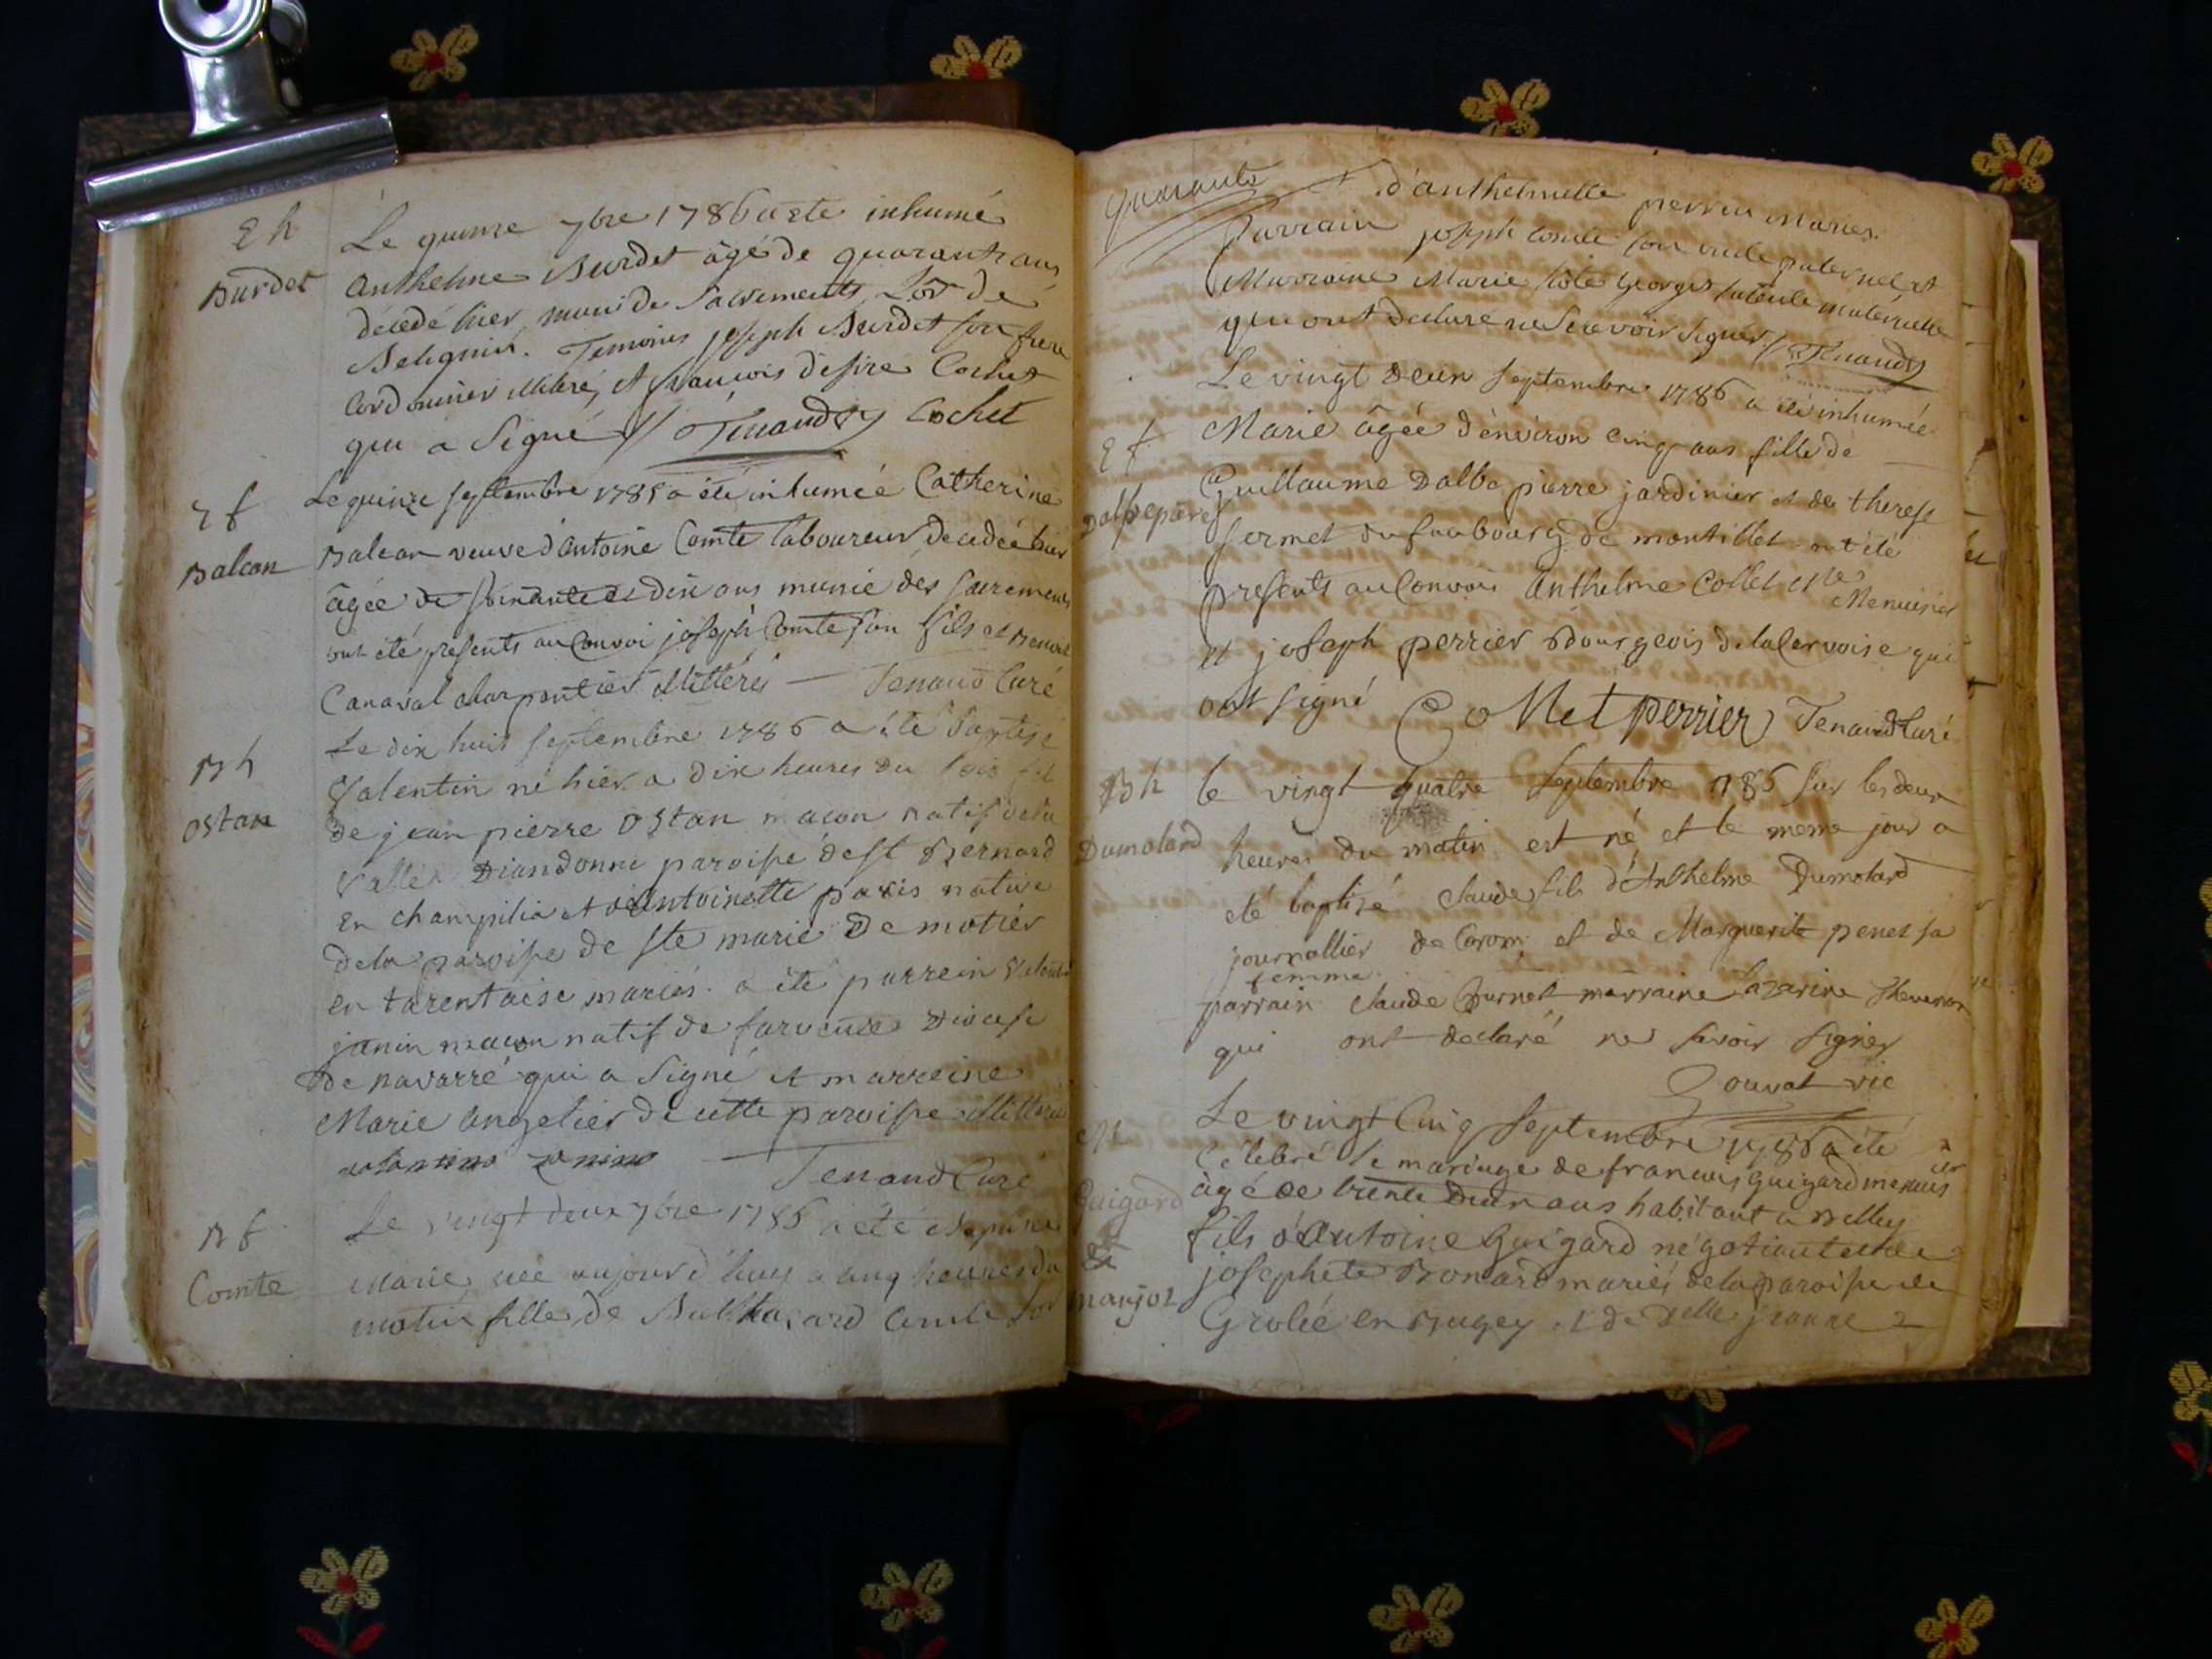 E h
Burdet
Le quinze 7bre 1786 a ete inhumé
Anthelme Burdet âgé de quarante ans
décédé hier muni de Sacrements de
Belignin. Temoins joseph Burdet son frere
Cordonnier illitéré, et francois desire Cochet
qui a Signé // Tenaud Cochet
E f
Balcon
Le quinze septembre 1786 a été inhumée Catherine
Balcon veuve d'antoine Comte laboureur decedée hier
âgée de soixante et dix ans munie des sacrements
ont été presents au Convoi joseph Comte son fils et Benoit
Canaval charpentier illitérés — Tenaud Curé
B h
ostan
Le dix huit septembre 1786 a été baptisé
Valentin né hier a dix heures du soir fils
de jean pierre ostan macon natif de la
vallée Diandonne paroisse de st Bernard
en champilia et d'antoinette paris native
de la paroisse de ste marie de motier
en tarentaise mariés. a été parrein Valentin
janin macon natif de Diocese
de navarre qui a signé et marreine
Marie angelier de cette paroisse illitéré
valantino zanino — Tenaud Curé
B f
Comte
Le vingt deux 7bre 1786 a été
Marie née aujourd'huy a cinq heures du
matin fille de Balthazard Comte
quarante
d'anthelmette perrin Mariés.
Parrain joseph Comte son oncle paternel et
Marraine Marie côte Georges maternelle
qui ont déclaré ne Scavoir signer // Tenaud
E f
Dalbepierre
Le vingt deux septembre 1786 a été inhumée
Marie âgée d'environ cinq ans fille de
Guillaume Dalbe pierre jardinier et de therese
fermet du faubourg de montillet ont été
presents au Convoi Anthelme Collet Me Menuisier
et joseph perrier Bourgeois de la Cervoise qui
ont signé Collet perrier Tenaud Curé
B h
Dumolard
le vingt quatre Septembre 1786 sur les deux
heures du matin est né, et le meme jour a
eté baptisé Claude fils d'Anthelme Dumolard
journallier de Coron et de Marguerite penet sa
femme
parrain Claude Burnet marraine Lazarine Thevenon
qui ont declaré ne savoir signer
Gouvat vic
M
Guigard
&
manjoz
Le vingt Cinq Septembre 1786 a été
Célébré le mariage de francois guigard menuisier
âgé de trente Deux ans habitant a Belley
fils d'Antoine Guigard négotiant et de
josephete Bonard mariés de la paroisse de
Grolée en Bugey et de Delle jeanne